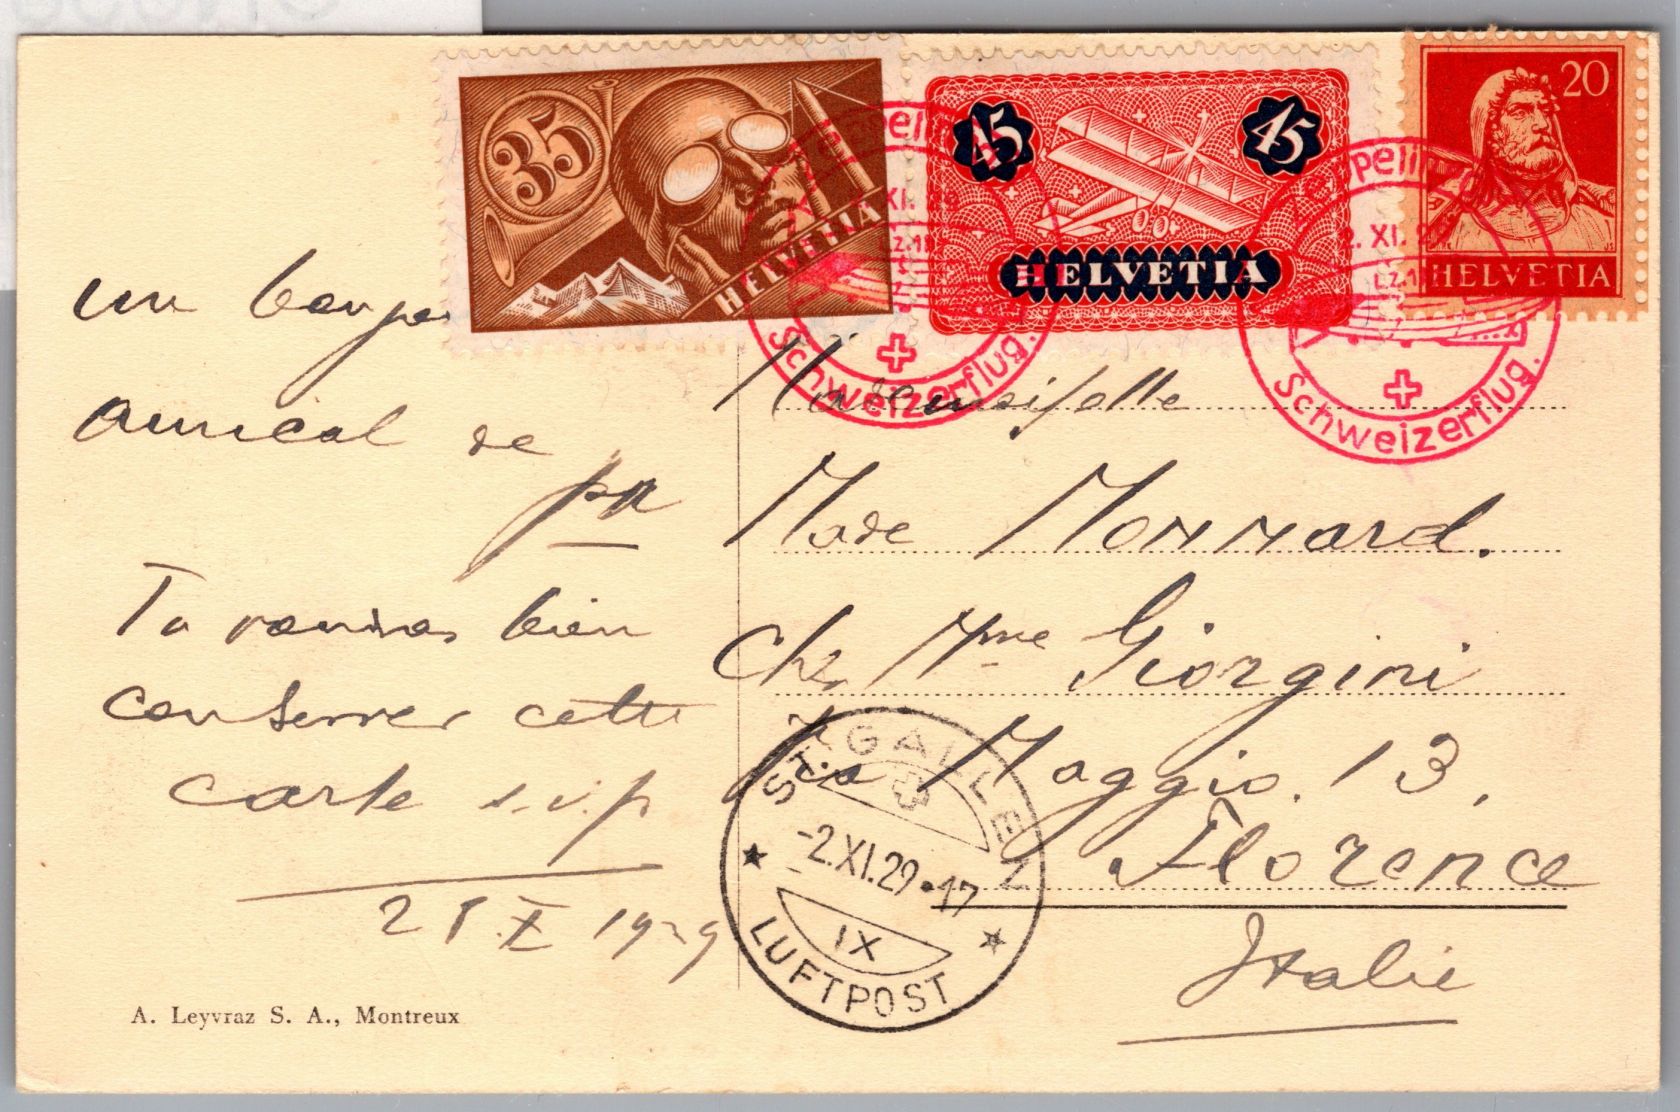 35
HELVETIA
45
45
HELVETIA
20
HELVETIA
Zeppelin
2. XI. 29
LZ.1
Schweizerflug.
Zeppelin
2. XI. 29
LZ.1
Schweizerflug.
un bonjour
amical de
Tu voudras bien
conserver cette
carte s.v.p.
X 1929
A. Leyvraz S. A., Montreux
Mademoiselle
Made Monnard.
Chz. Mme Giorgini
Via Maggio. 13,
Florence
Italie
ST. GALLEN
-2.XI.29•17
IX
LUFTPOST